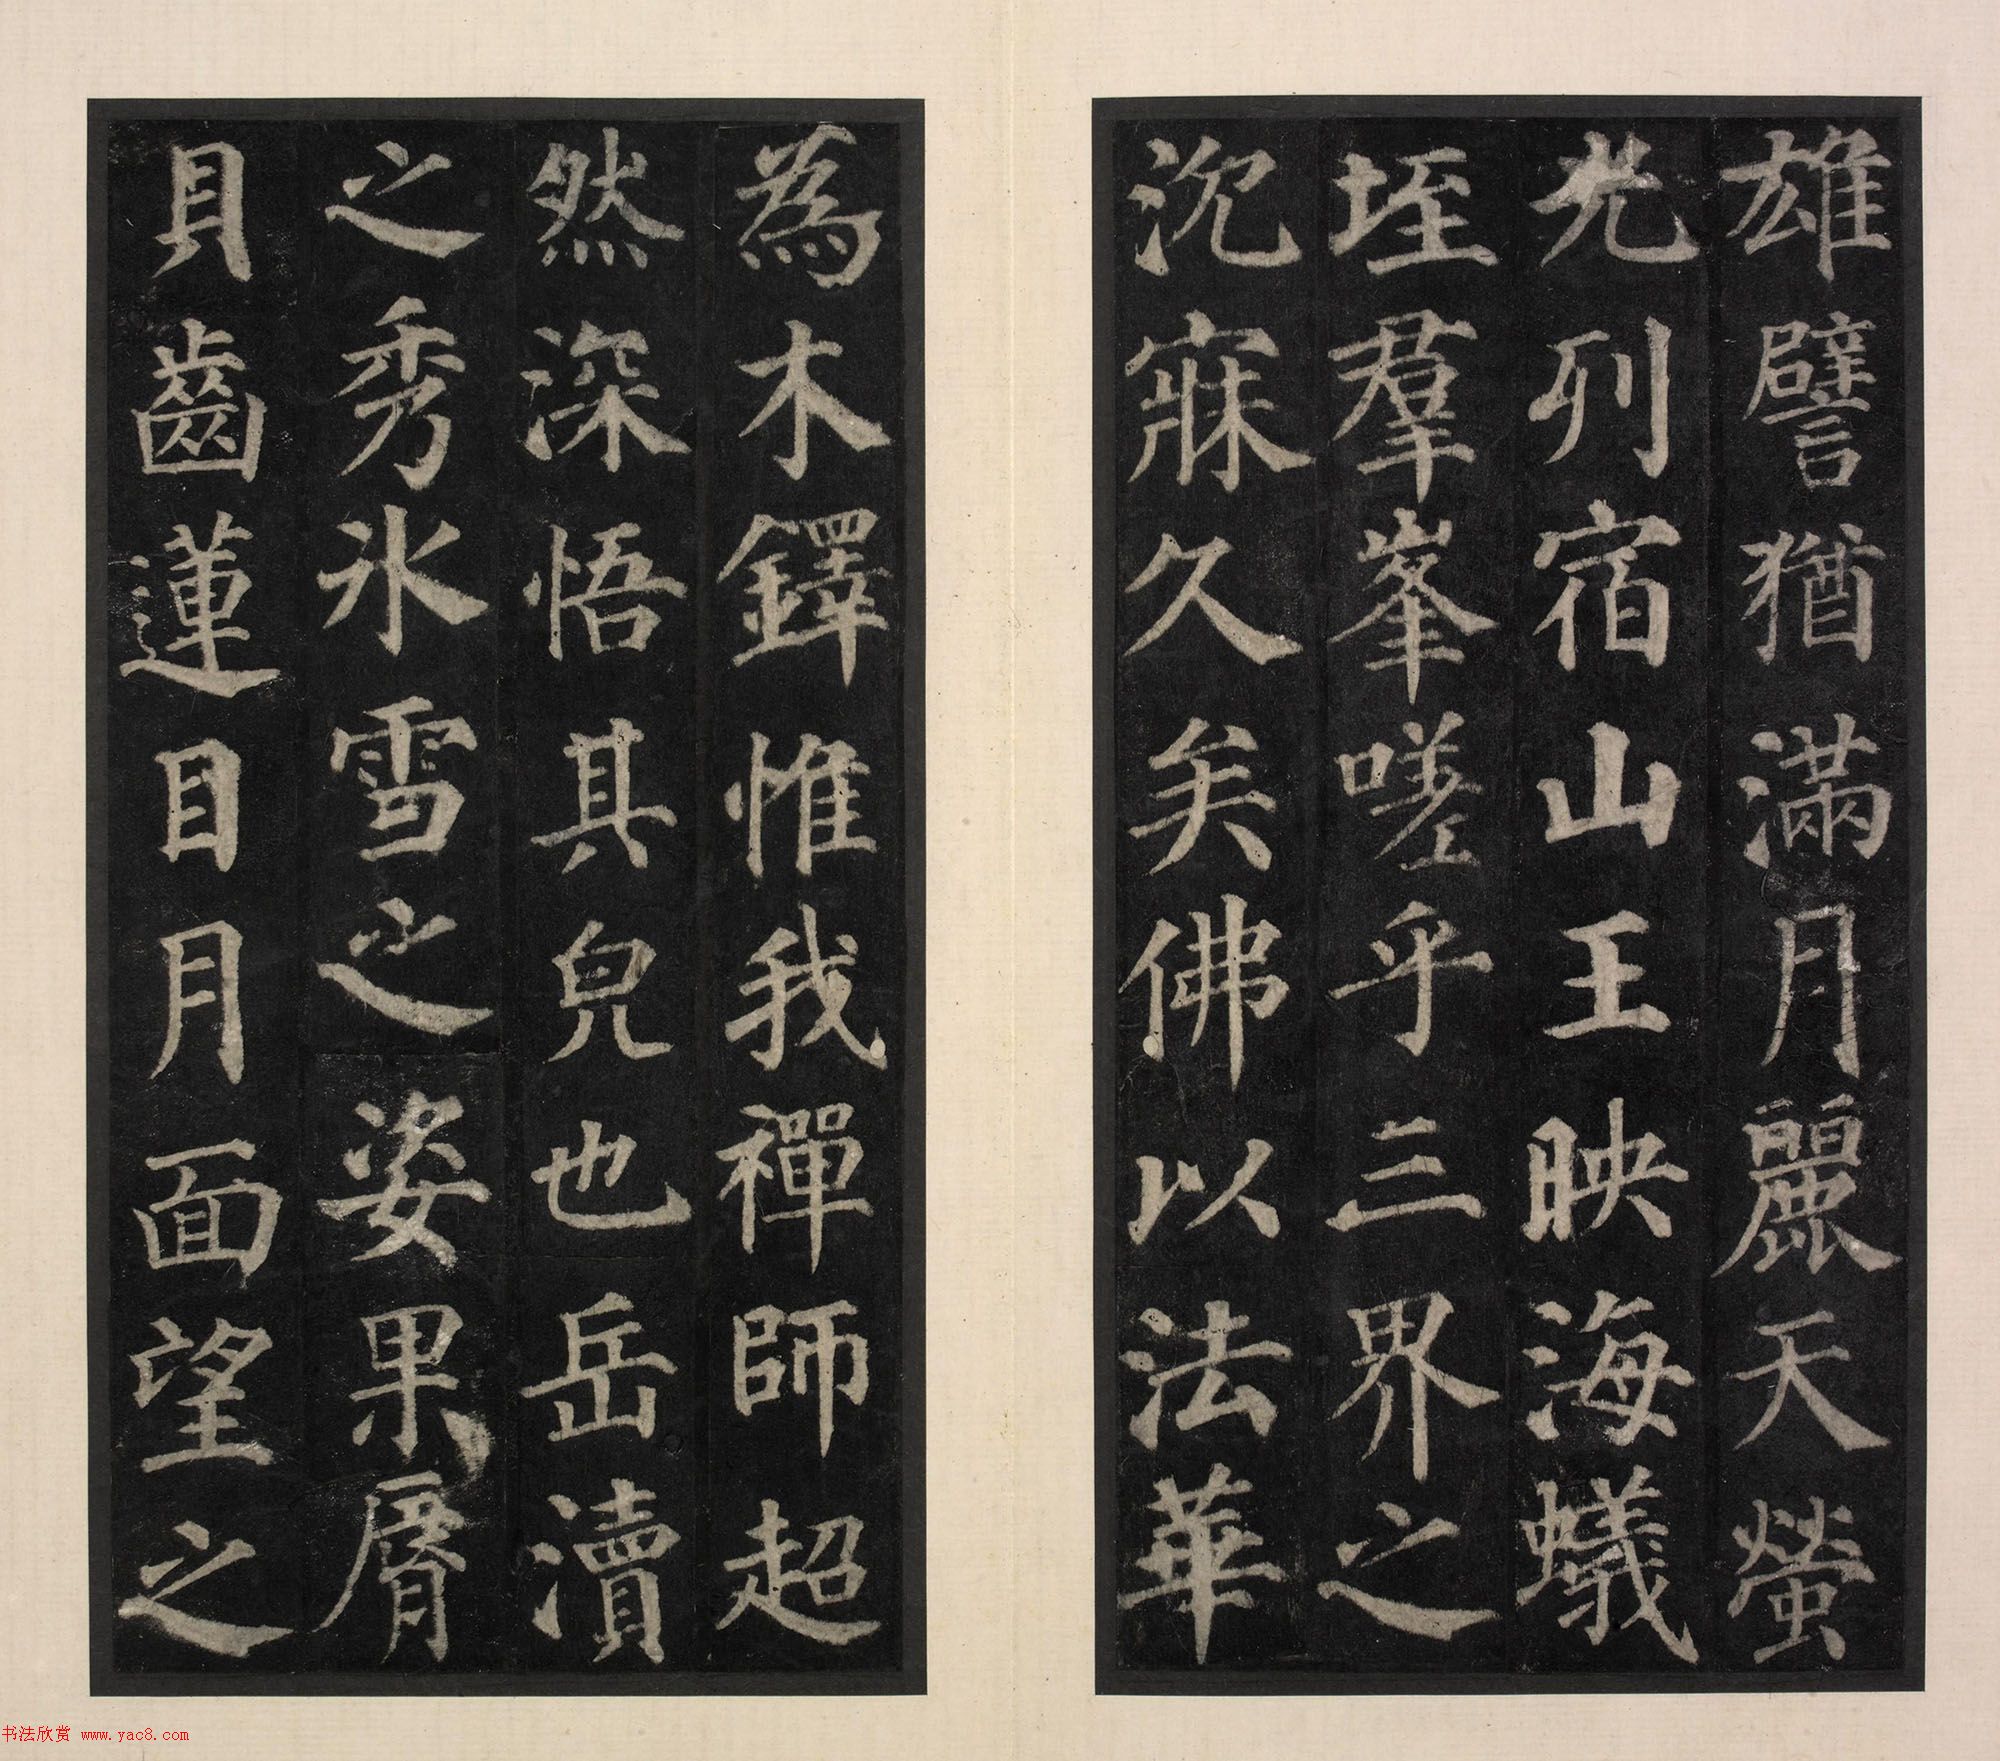 雄譬猶滿月麗天螢
光列宿山王映海蟻
垤羣峯嗟乎三界之
沉寐久矣佛以法華
為木鐸惟我禪師超
然深悟其皃也岳瀆
之秀冰雪之姿果脣
貝齒蓮目月面望之
书法欣赏 www.yac8.com